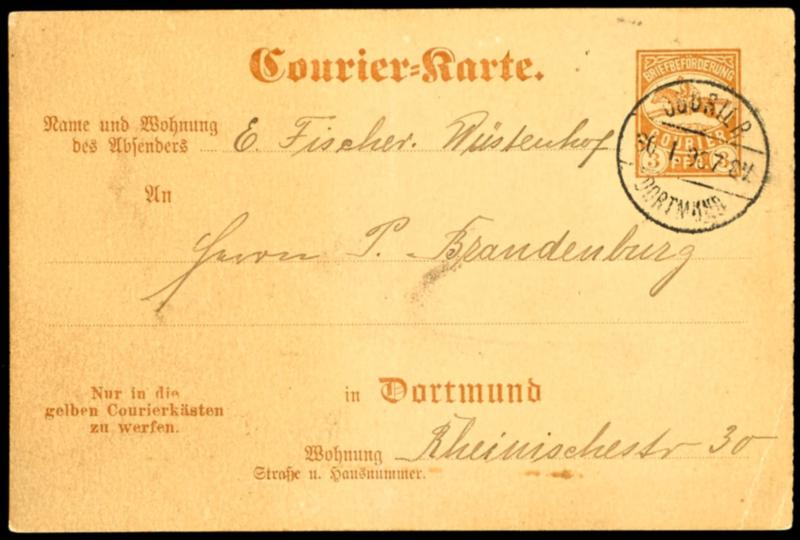 Courier-Karte.
BRIEFBEFÖRDERUNG
COURIER
3 PFG 3
COURIER
DORTMUND
Name und Wohnung
des Absenders E. Fischer. Wüstenhof
An
Herrn P. Brandenburg
Nur in die
gelben Courierkästen
zu werfen.
in Dortmund
Wohnung Rheinischestr 30
Straße u. Hausnummer.